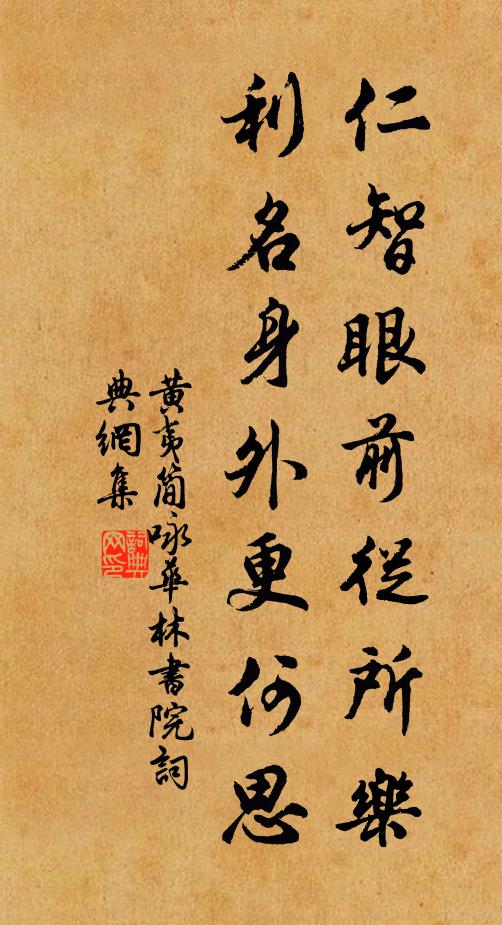 仁智眼前從所樂
利名身外更何思
黄夷簡咏華林書院詞
典網集
詞典
网印